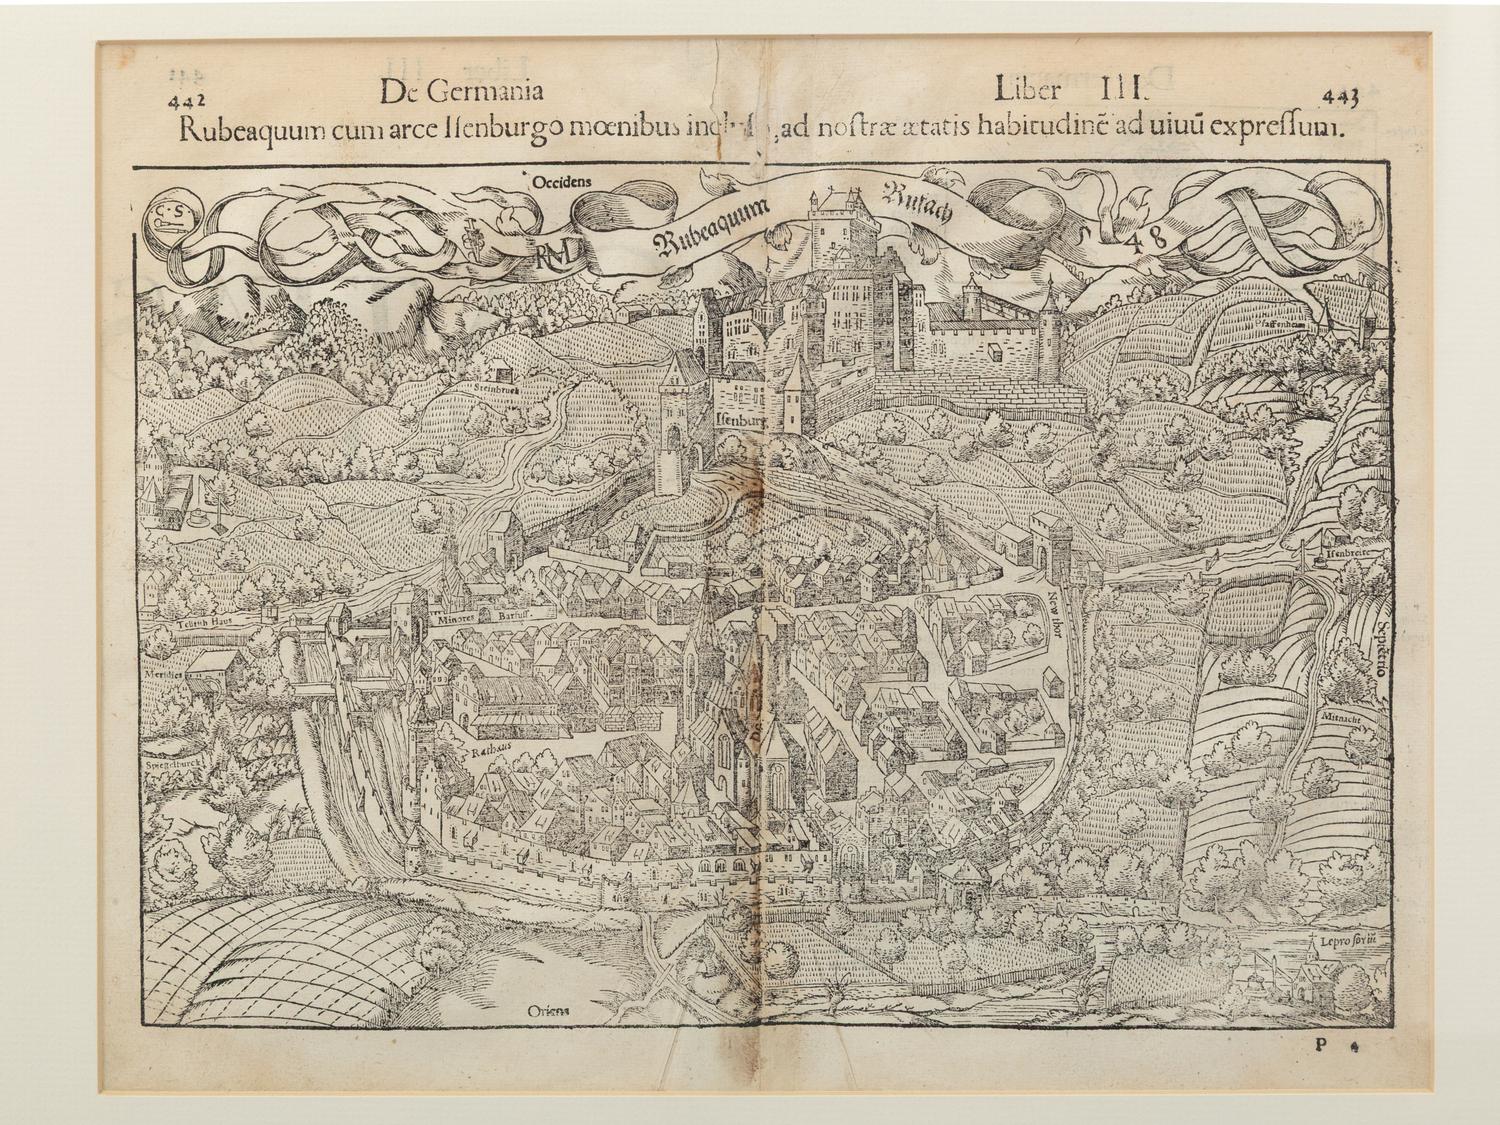 442 De Germania Liber III. 443
Rubeaquum cum arce Iſenburgo mœnibus ad noſtræ ætatis habitudinē ad uiuū expreſſum.
Occidens
C·S
RMD
Rubeaquum
Rufach
48
Pfaffenheim
Steinbruch
Iſenburg
Iſenbreite
Teütſch Haus
Minores Barfuſ
New thor
Septētrio
Meridies
Rathaus
Mitnacht
Spiegelburck
Leproſoriū
Oriens
P 4